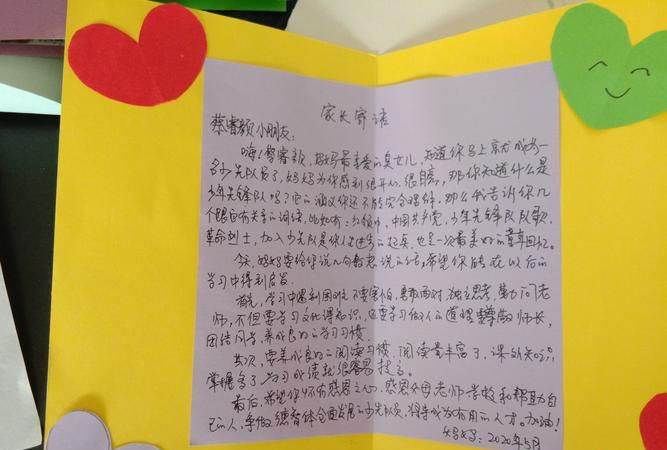 家长寄语
蔡睿颖小朋友:
嗨!睿颖,妈妈最亲爱的臭女儿,知道你马上就成为一
名少先队员了,妈妈为你感到很开心,很自豪,那你知道什么是
少年先锋队吗?它的涵义你还不能完全理解,那么我告诉你几
个跟它有关的词语,比如有:红领巾,中国共产党,少年先锋队队歌,
革命烈士,加入少先队是你人生进步的起点,也是一次最美好的童年回忆。
今天,妈妈要给你说几句想说的话,希望你能在以后的
学习中得到启发。
首先,学习中遇到困难不要害怕,勇敢面对,独立思考,勤问老
师,不但要学习文化课知识,还要学习做人的道理,尊敬师长,
团结同学,养成良好的学习习惯。
其次,要养成良好的阅读习惯,阅读量丰富了,课外知识
掌握多了,学习成绩就很容易提高。
最后,希望你怀有感恩之心,感恩父母老师学校和帮助自
己的人,争做德智体全面发展的少先队员,将来成为有用的人才。加油!
妈妈:2020年5月